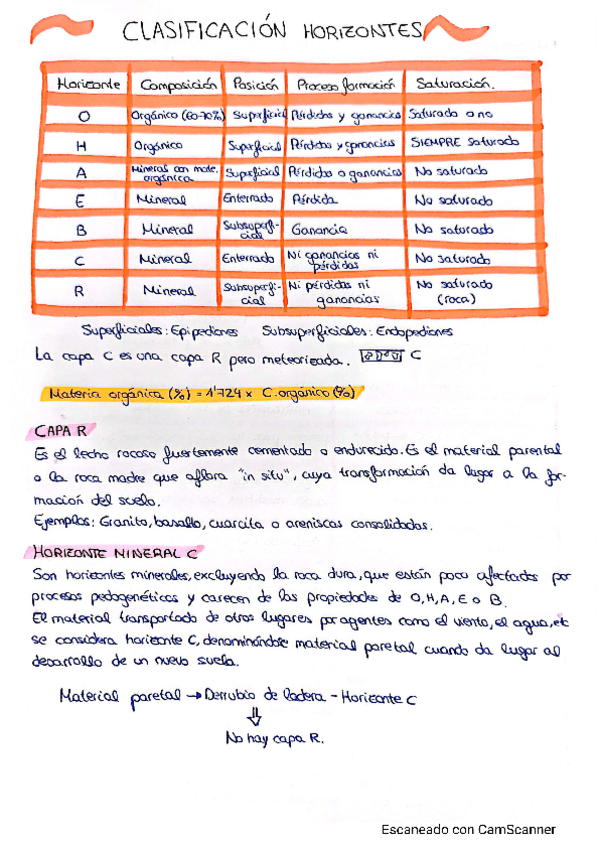 CLASIFICACIÓN HORIZONTES
Horizonte Composición Posición Proceso formación Saturación.
O Orgánico (60-70%) Superficial Pérdidas y ganancias Saturado o no
H Orgánico Superficial Pérdidas y ganancias SIEMPRE saturado
A Mineral con mate. orgánica Superficial Pérdidas o ganancias No saturado
E Mineral Enterrado Pérdida No saturado
B Mineral Subsuperfi-cial Ganancia No saturado
C Mineral Enterrado Ni ganancias ni pérdidas No saturado
R Mineral Subsuperfi-cial Ni pérdidas ni ganancias No saturado (roca)
Superficiales: Epipediones Subsuperficiales: Endopediones
La capa C es una capa R pero meteorizada. C
Materia orgánica (%) = 1'724 x C. orgánico (%)
CAPA R
Es el lecho rocoso fuertemente cementado o endurecido. Es el material parental
o la roca madre que aflora "in situ", cuya transformación da lugar a la for-
mación del suelo.
Ejemplos: Granito, basalto, cuarcita o areniscas consolidadas.
HORIZONTE MINERAL C
Son horizontes minerales, excluyendo la roca dura, que están poco afectados por
procesos pedogenéticos y carecen de las propiedades de O, H, A, E o B.
El material transportado de otros lugares por agentes como el viento, el agua, etc
se considera horizonte C, denominándose material paretal cuando da lugar al
desarrollo de un nuevo suelo.
Material paretal → Derrubio de ladera - Horizonte C
⇓
No hay capa R.
Escaneado con CamScanner